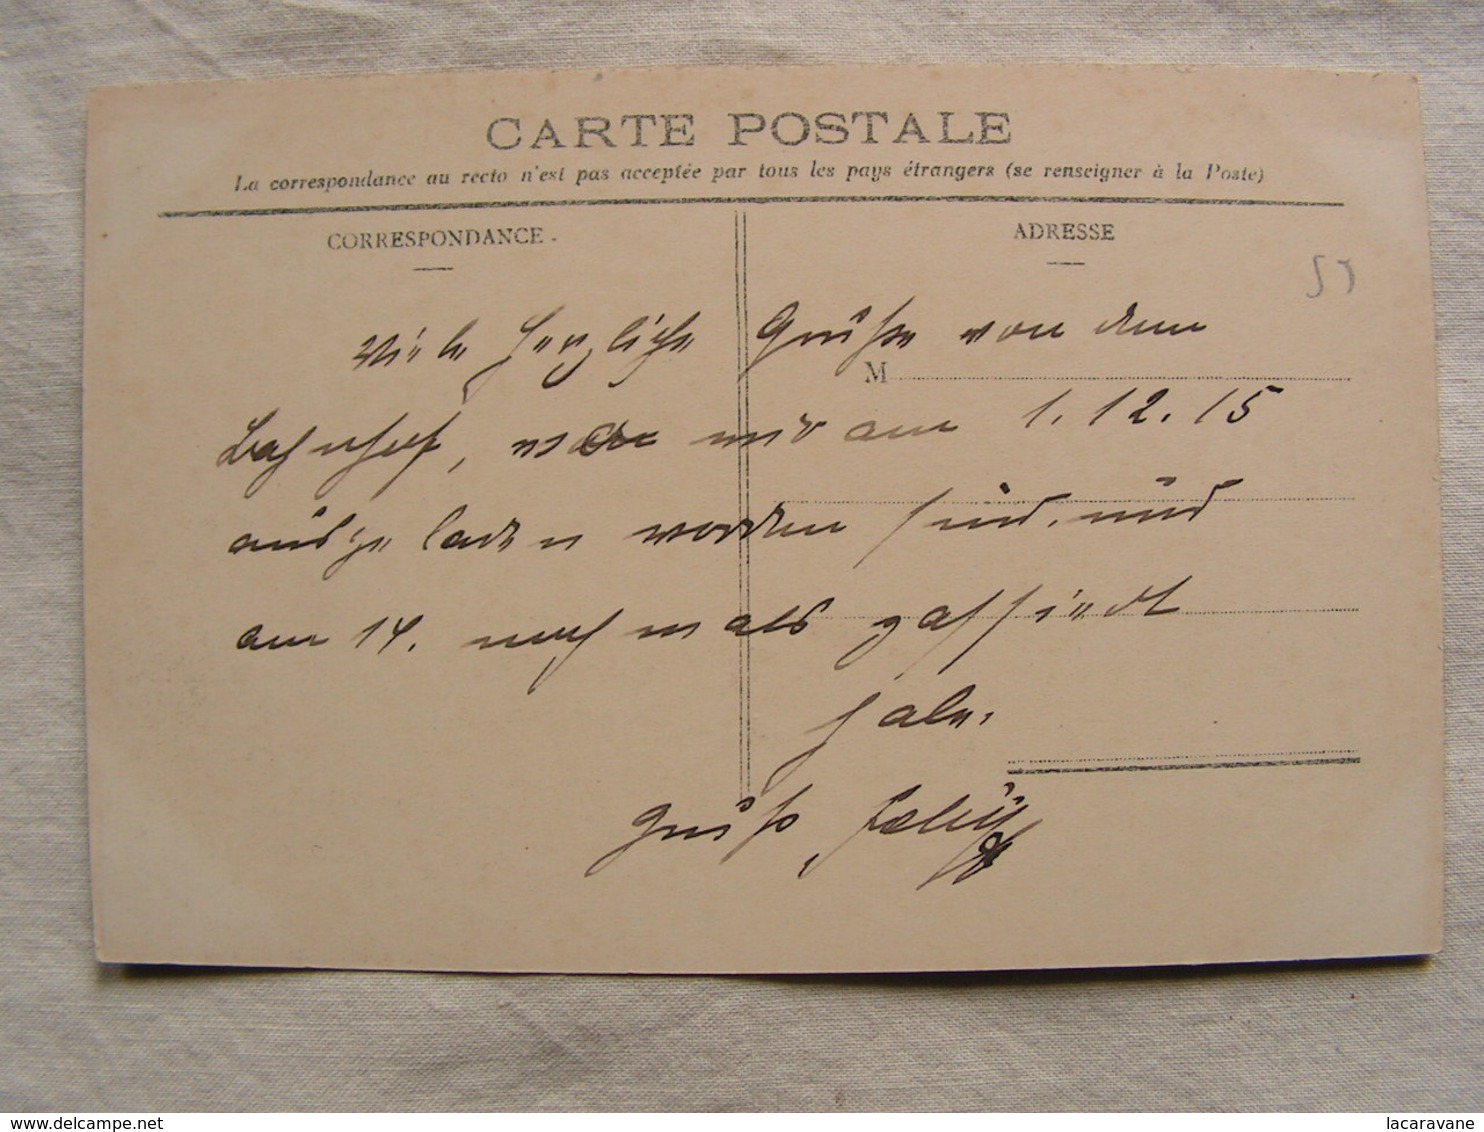 CARTE POSTALE
La correspondance au recto n'est pas acceptée par tous les pays étrangers (se renseigner à la Poste)
CORRESPONDANCE
ADRESSE
59
Viele herzliche Grüße von dem
M
Bahnhof, wo wir am 1.12.15
ausgeladen worden sind, und
am 14. nochmals passiert
habe.
Gruß,
delcampe.net
lacaravane